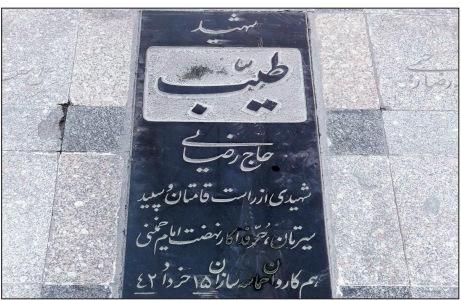 شهید
طیّب
حاج رضایی
شهیدی از راست قامتان و سپید
سیرتان، حُرّ فداکار نهضت امام خمینی
هم کاروان حماسه سازان ۱۵ خرداد ۴۲